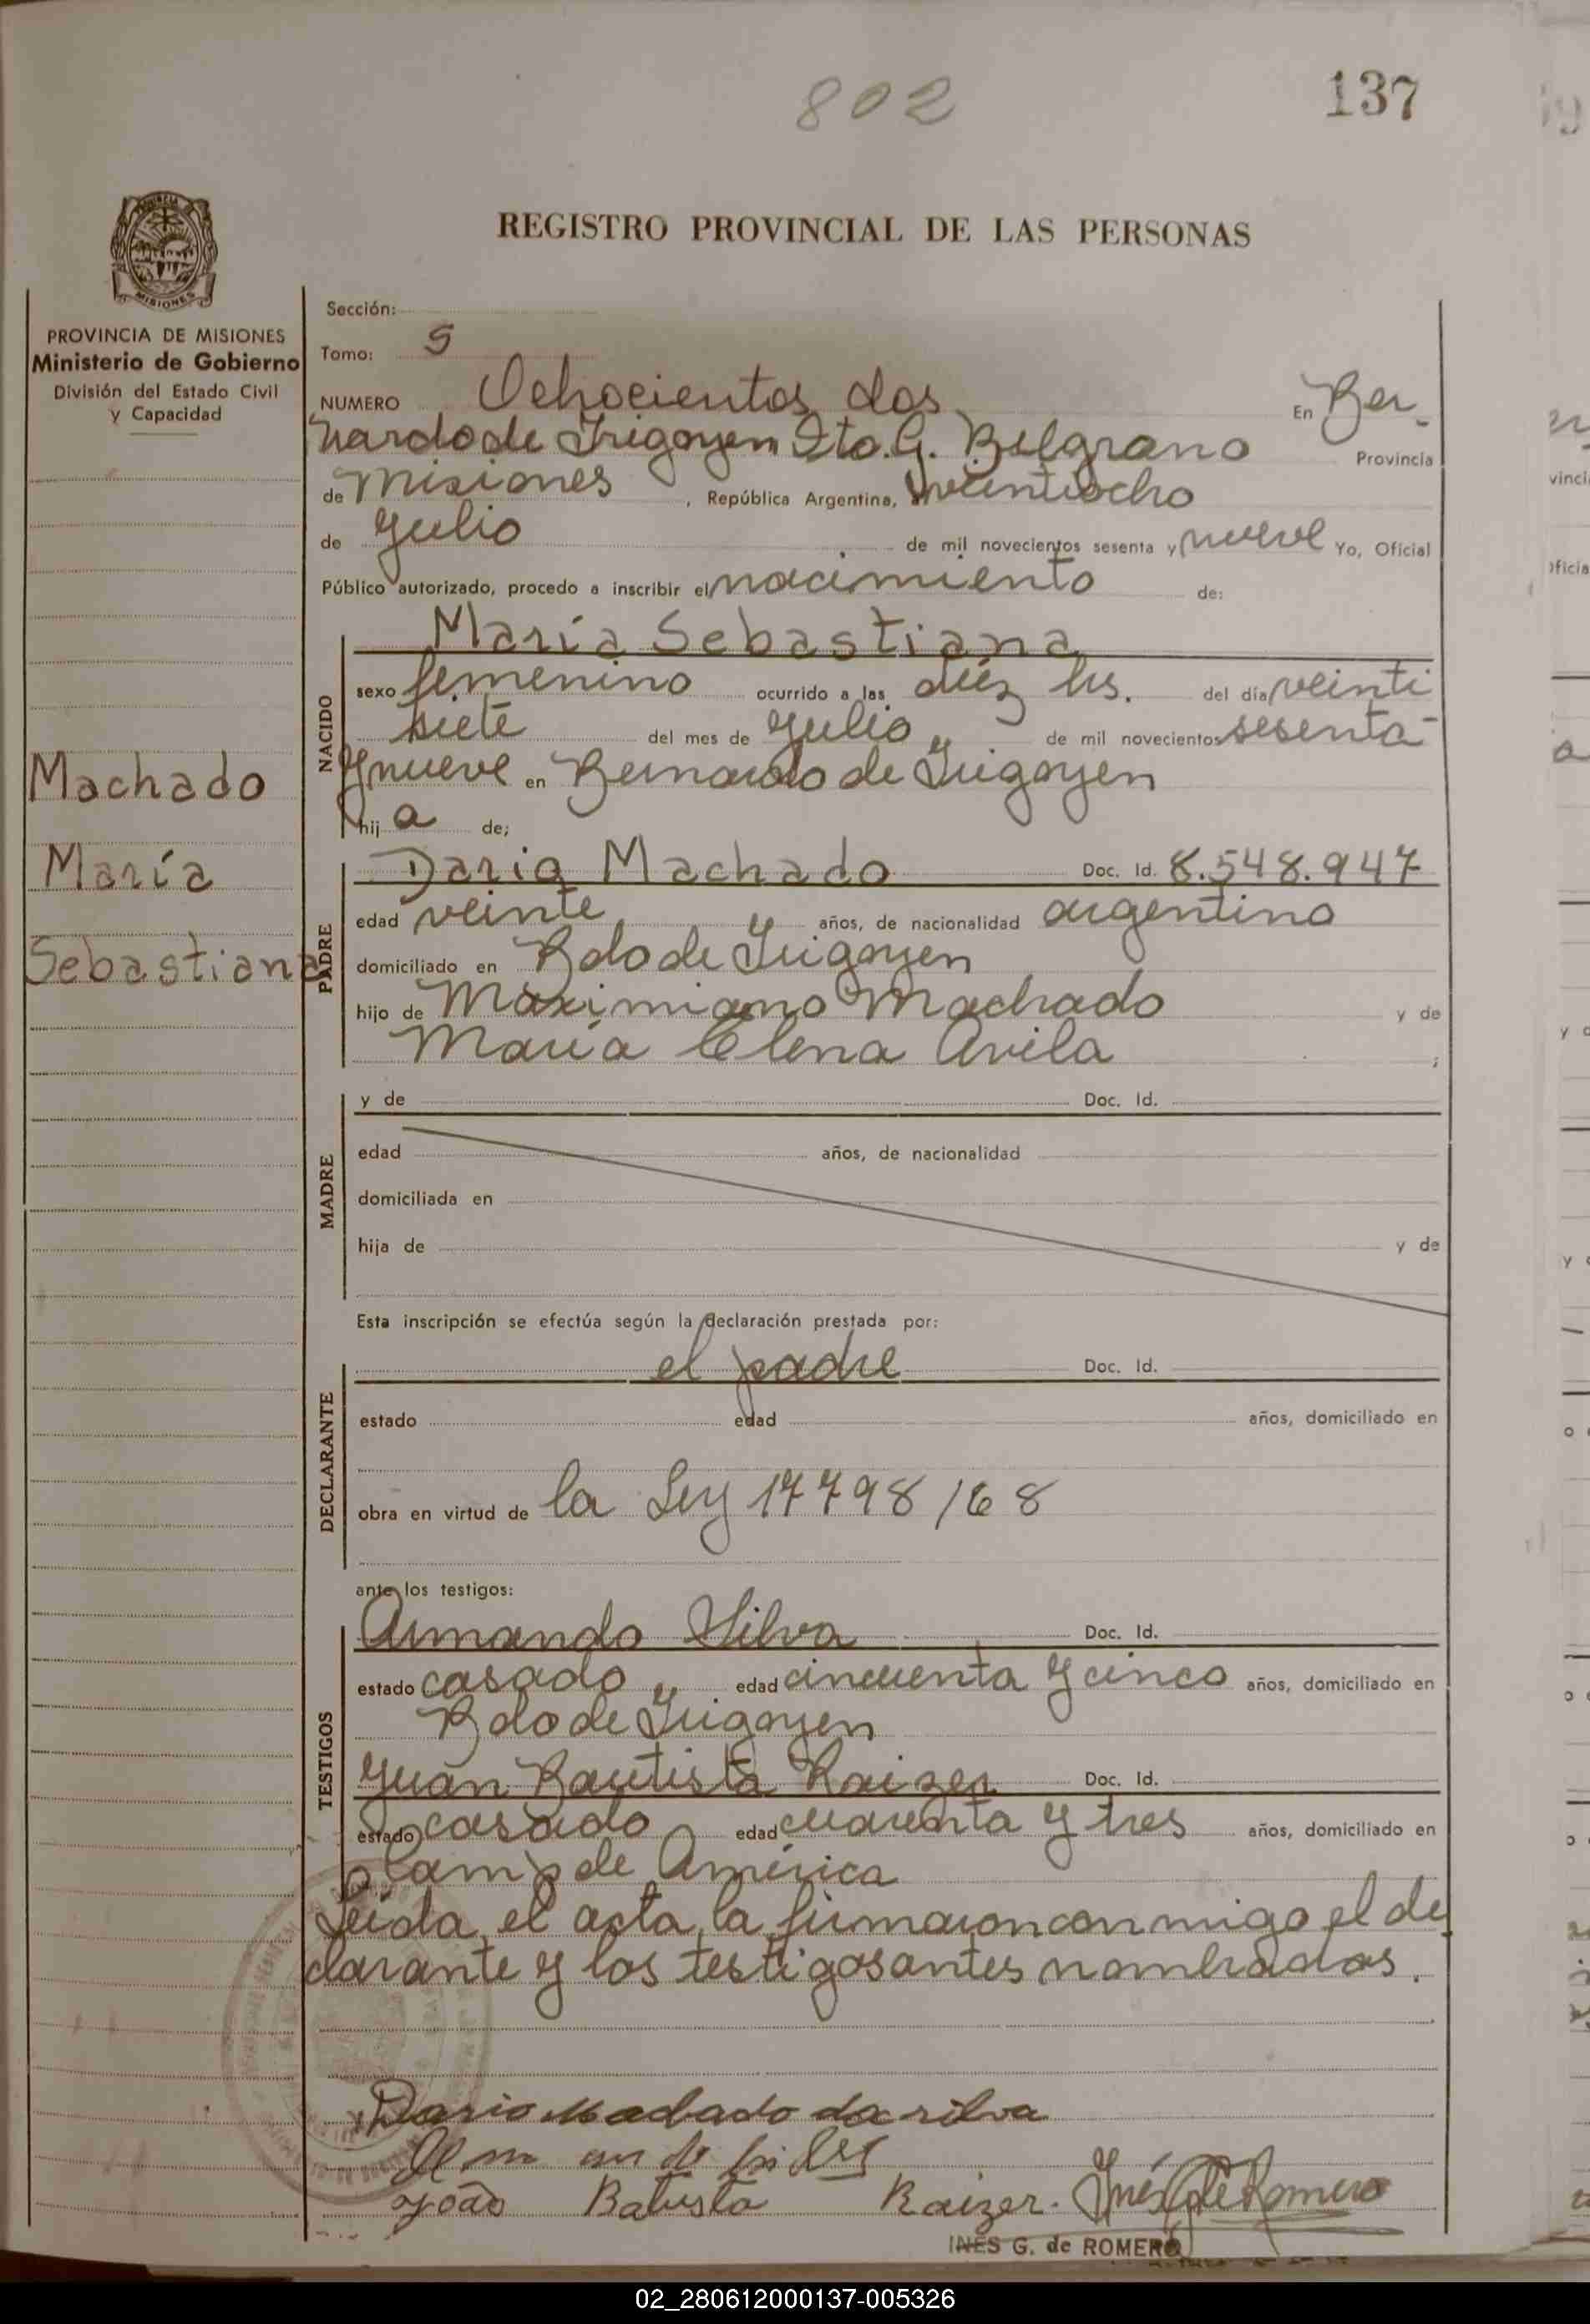 802
137
REGISTRO PROVINCIAL DE LAS PERSONAS
MISIONES
PROVINCIA DE MISIONES
Ministerio de Gobierno
División del Estado Civil
y Capacidad
Sección:
Tomo: 5
NUMERO Ochocientos dos En Ber-
nardo de Irigoyen Dto. G. Belgrano Provincia
de Misiones, República Argentina, a veintiocho
de Julio de mil novecientos sesenta y nueve Yo, Oficial
Público autorizado, procedo a inscribir el nacimiento de:
María Sebastiana
NACIDO
sexo femenino ocurrido a las diéz hs. del día veinti
siete del mes de Julio de mil novecientos sesenta-
y nueve en Bernardo de Irigoyen
hija de;
Machado
María
Sebastiana
PADRE
Dario Machado Doc. Id. 8.548.947
edad veinte años, de nacionalidad argentino
domiciliado en Bdo de Irigoyen
hijo de Maximiano Machado y de
María Elena Avila ;
MADRE
y de Doc. Id.
edad años, de nacionalidad
domiciliada en
hija de y de
Esta inscripción se efectúa según la declaración prestada por:
DECLARANTE
el padre Doc. Id.
estado edad años, domiciliado en
obra en virtud de la Ley 17798/68
ante los testigos:
TESTIGOS
Armando Silva Doc. Id.
estado casado edad cincuenta y cinco años, domiciliado en
Bdo de Irigoyen
Juan Bautista Raizer Doc. Id.
estado casado edad cuarenta y tres años, domiciliado en
de América
Leída el acta, la firmaron conmigo el de
clarante y los testigos antes nombrados.
Dario Machado da silva
João Batista Raizer. Inés G de Romero
INÉS G. de ROMERO
02_280612000137-005326